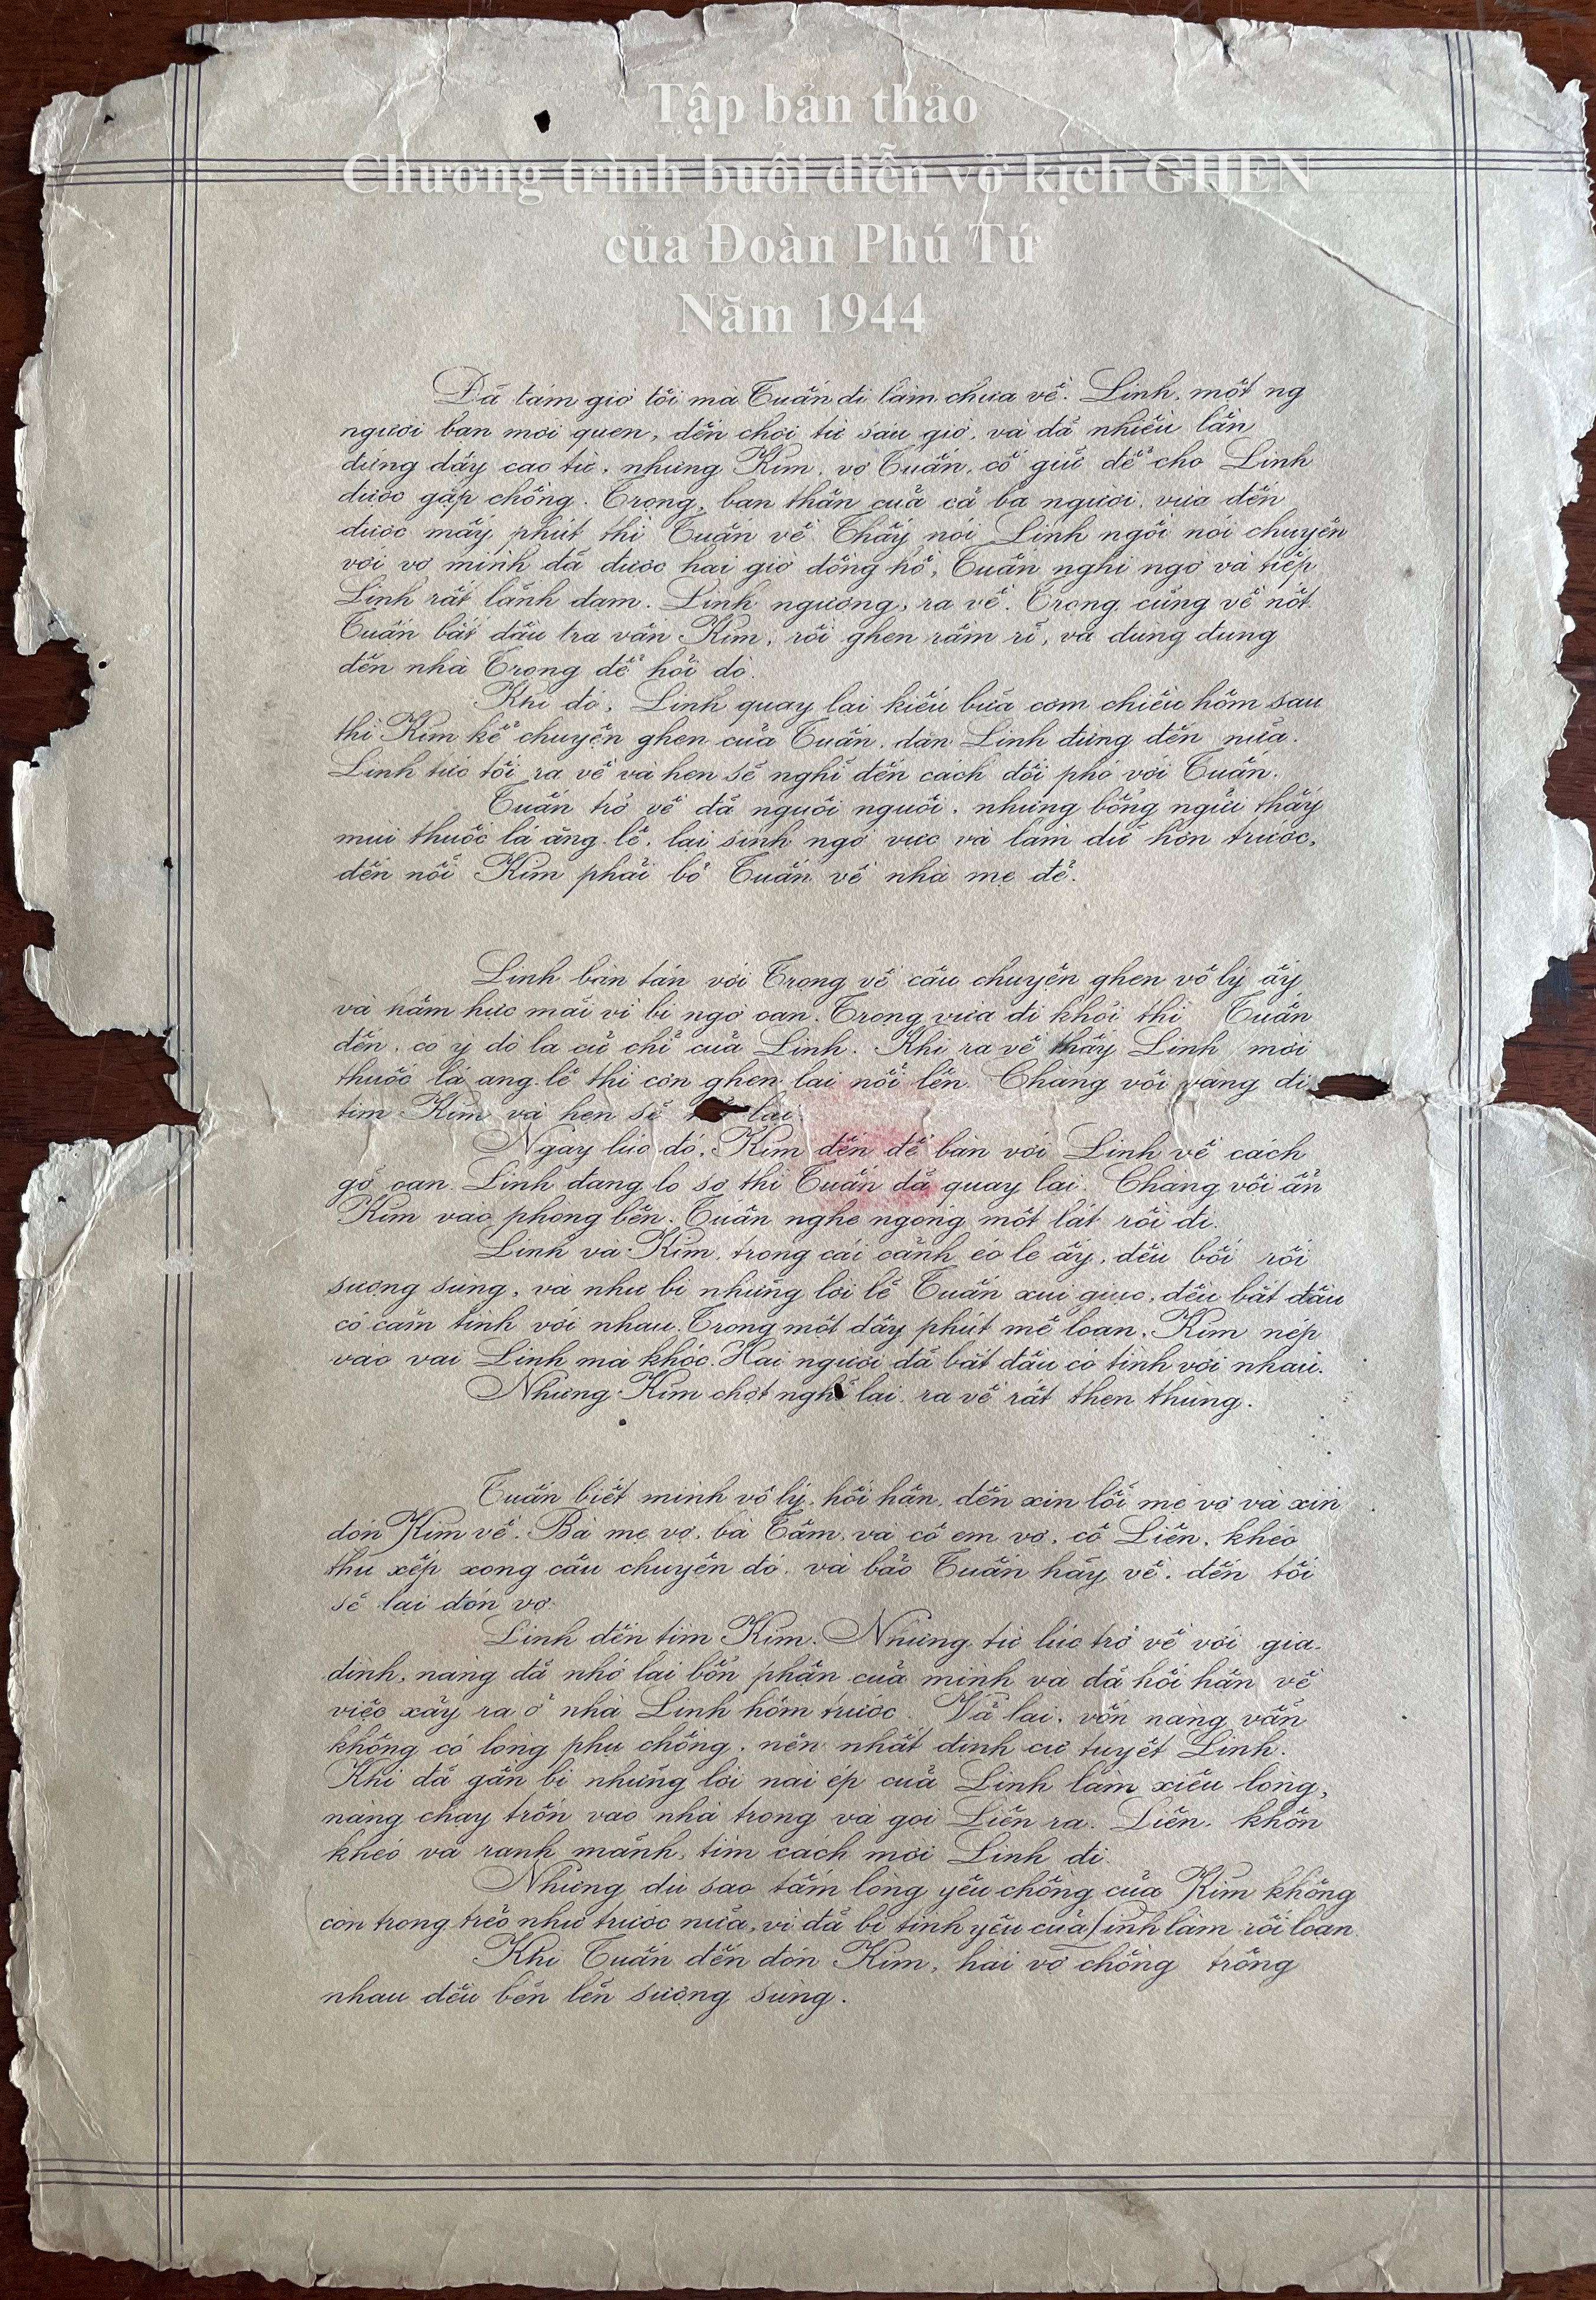 Tập bản thảo
Chương trình buổi diễn vở kịch GHEN
của Đoàn Phú Tứ
Năm 1944
Đã tám giờ tối mà Tuấn đi làm chưa về. Linh, một ng
người bạn mới quen, đến chơi từ sáu giờ, và đã nhiều lần
đứng dậy cáo từ, nhưng Kim, vợ Tuấn, cố giữ để cho Linh
được gặp chồng. Trọng, bạn thân của cả ba người, vừa đến
được mấy phút thì Tuấn về. Thấy nói Linh ngồi nói chuyện
với vợ mình đã được hai giờ đồng hồ, Tuấn nghi ngờ và tiếp
Linh rất lãnh đạm. Linh ngượng, ra về. Trọng cũng về nốt.
Tuấn bắt đầu tra vấn Kim, rồi ghen rầm rĩ, và đùng đùng
đến nhà Trọng để hỏi dò.
Khi đó, Linh quay lại kiếu bữa cơm chiều hôm sau
thì Kim kể chuyện ghen của Tuấn, dặn Linh đừng đến nữa.
Linh tức tối ra về và hẹn sẽ nghĩ đến cách đối phó với Tuấn.
Tuấn trở về đã nguôi nguôi, nhưng bỗng ngửi thấy
mùi thuốc lá ăng-lê, lại sinh ngờ vực và làm dữ hơn trước,
đến nỗi Kim phải bỏ Tuấn về nhà mẹ đẻ.
Linh bàn tán với Trọng về câu chuyện ghen vô lý ấy
và hầm hực mãi vì bị ngờ oan. Trọng vừa đi khỏi thì Tuấn
đến, có ý dò la cử chỉ của Linh. Khi ra về thấy Linh mời
thuốc lá ang-lê thì cơn ghen lại nổi lên. Chàng vội vàng đi
tìm Kim và hẹn sẽ lại.
Ngay lúc đó, Kim đến để bàn với Linh về cách
gỡ oan. Linh đang lo sợ thì Tuấn đã quay lại. Chàng vội ẩn
Kim vào phòng bên. Tuấn nghe ngóng một lát rồi đi.
Linh và Kim, trong cái cảnh éo le ấy, đều bối rối
sượng sùng, và như bị những lời lẽ Tuấn xui giục, đều bắt đầu
có cảm tình với nhau. Trong một dây phút mê loạn, Kim nép
vào vai Linh mà khóc. Hai người đã bắt đầu có tình với nhau.
Nhưng Kim chợt nghĩ lại, ra về rất thẹn thùng.
Tuấn biết mình vô lý, hối hận, đến xin lỗi mẹ vợ và xin
đón Kim về. Bà mẹ vợ, bà Tâm, và cô em vợ, cô Liên, khéo
thu xếp xong câu chuyện đó, và bảo Tuấn hãy về, đến tối
sẽ lại đón vợ.
Linh đến tìm Kim. Nhưng từ lúc trở về với gia-
đình, nàng đã nhớ lại bổn phận của mình và đã hối hận về
việc xảy ra ở nhà Linh hôm trước. Vả lại, vốn nàng vẫn
không có lòng phụ chồng, nên nhất định cự tuyệt Linh.
Khi đã gần bị những lời nài ép của Linh làm xiêu lòng,
nàng chạy trốn vào nhà trong và gọi Liên ra. Liên, khôn
khéo và ranh mãnh, tìm cách mời Linh đi.
Nhưng dù sao tấm lòng yêu chồng của Kim không
còn trong trẻo như trước nữa, vì đã bị tình yêu của Linh làm rối loạn.
Khi Tuấn đến đón Kim, hai vợ chồng trông
nhau đều bẽn lẽn sượng sùng.